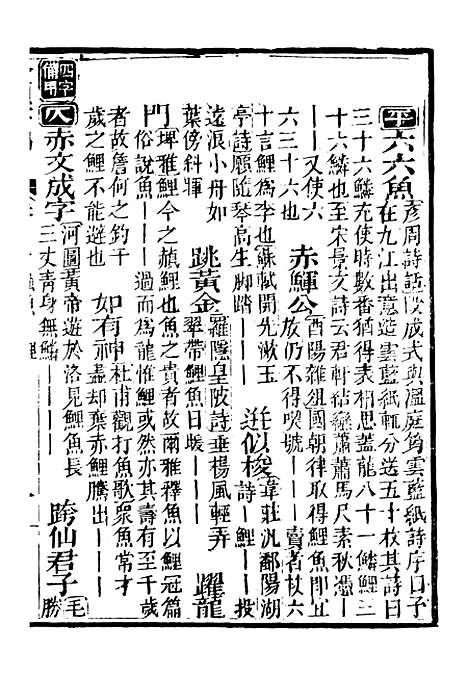 平六六魚
彥周詩話段成式與溫庭筠雲藍紙詩序曰予
在九江出意造雲藍紙輒分送五十枚其詩曰
三十六鱗充使時數番猶得表相思蓋龍八十一鱗鯉三
十六鱗也至宋景文詩云君軒結戀蕭蕭馬尺素秋憑—
——又使六
六三十六也
赤鯶公
酉陽雜俎國朝律得鯉魚即宜
放仍不得喫號———賣者杖六
十言鯉為李也蘇軾開先漱玉
亭詩願隨琴高生脚踏——
迸似梭
韋莊汎鄱陽湖
詩—鯉———投
遠浪小舟如
葉傍斜暉
跳黃金
羅隱皇陂詩垂楊風輕弄
翠帶鯉魚日暖———
躍龍
門
埤雅鯉今之鯉也魚之貴者故爾雅釋魚以鯉冠篇
俗說魚———過而為龍惟鯉或然亦其壽有至千歲
者故詹何之釣千
歲之鯉不能避也
如有神
杜甫觀打魚歌衆魚常才
盡却棄赤鯉騰出———
四字備用
仄赤文成字
河圖黃帝遊於洛見鯉魚長
三丈青身無鱗————
跨仙君子
毛
勝